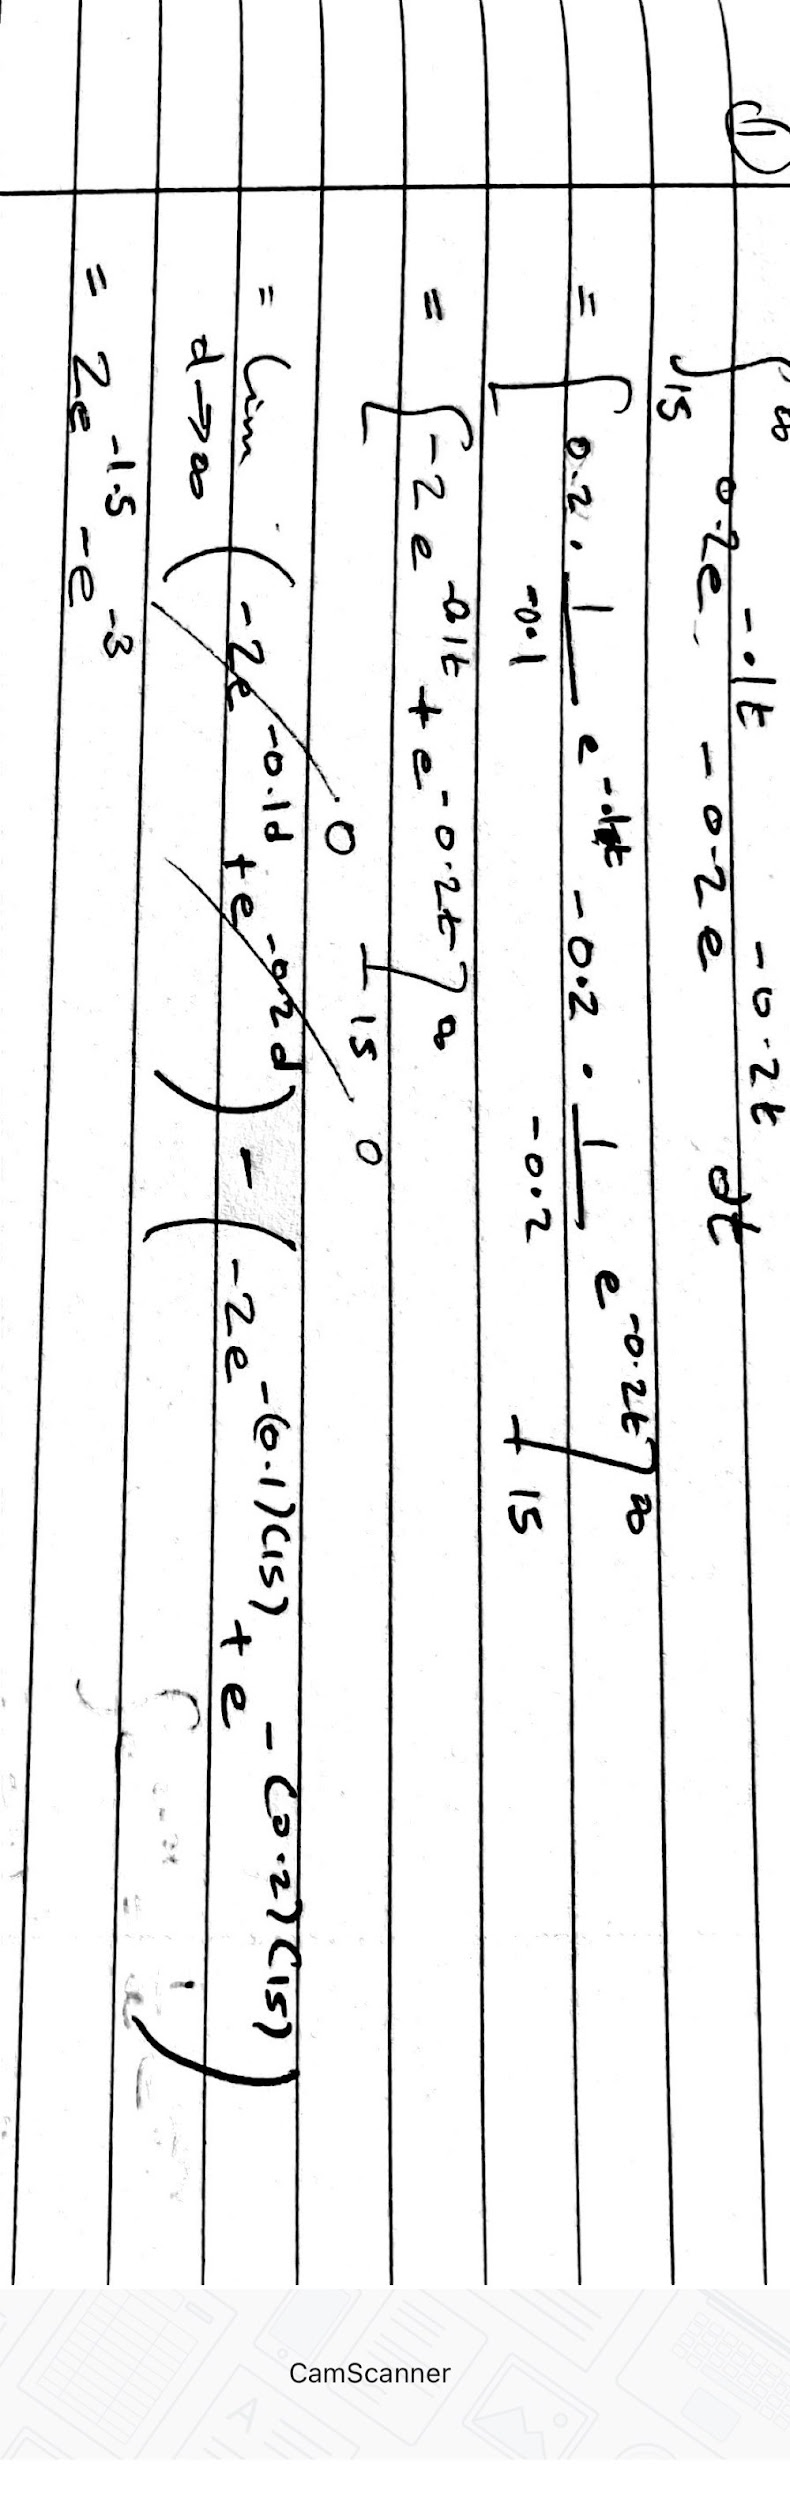 ①
∫₁₅^∞ 0.2e^(-.1t) - 0.2e^(-0.2t) dt
= [0.2 · 1/-0.1 e^(-.1t) - 0.2 · 1/-0.2 e^(-0.2t)]₁₅^∞
= [-2e^(-0.1t) + e^(-0.2t)]₁₅^∞
= lim d→∞ (-2e^(-0.1d) 0 + e^(-0.2d) 0) - (-2e^(-(0.1)(15)) + e^(-(0.2)(15)))
= 2e^(-1.5) - e^(-3)
CamScanner